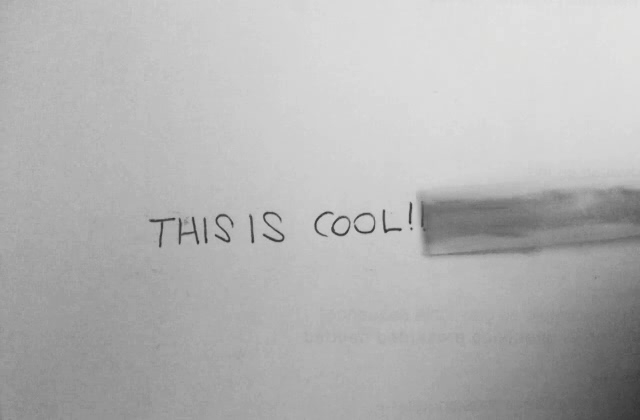 THIS IS COOL!!